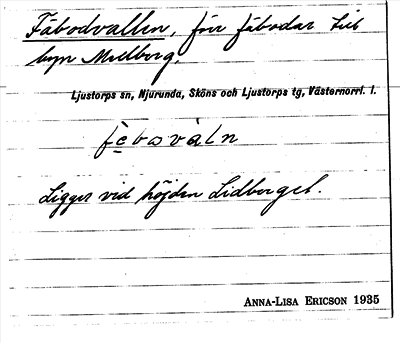 Fäbodvallen, förr fäbodar till
byn Mellberg.
Ljustorps sn, Njurunda, Sköns och Ljustorps tg, Västernorrl. l.
fèbovàln
Ligger vid höjden Lidberget.
ANNA-LISA ERICSON 1935